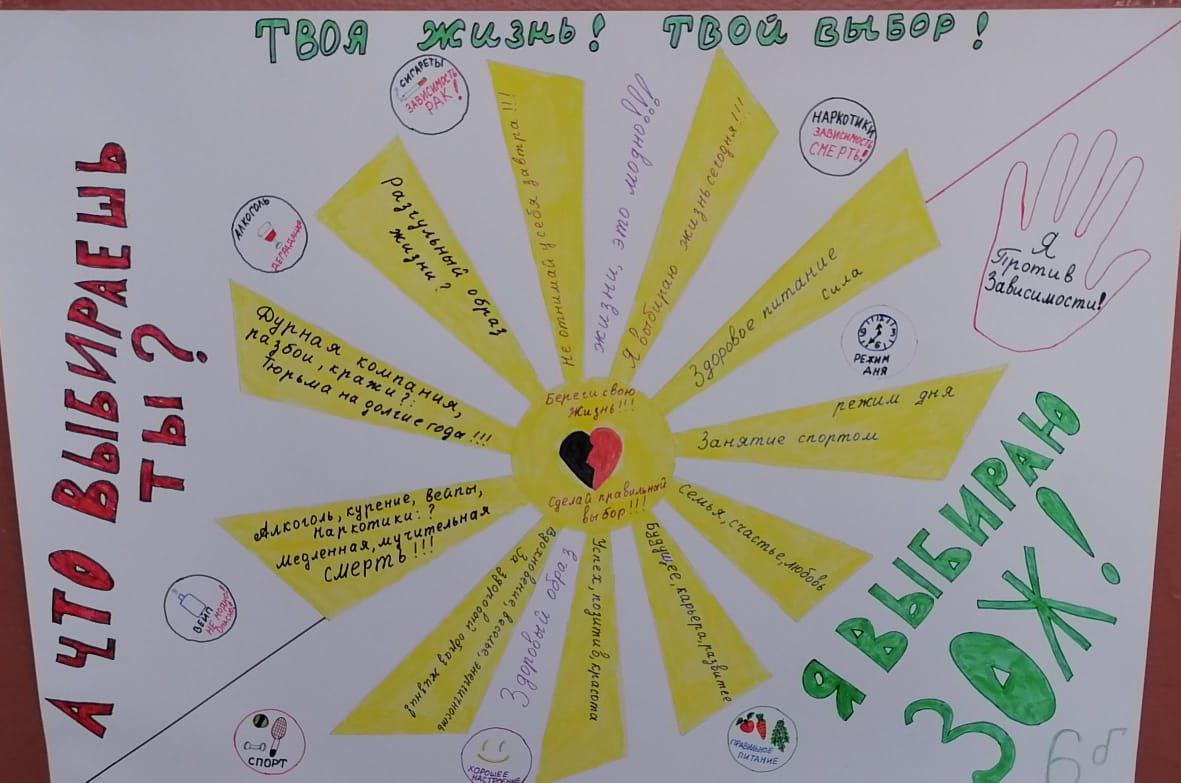 ТВОЯ ЖИЗНЬ! ТВОЙ ВЫБОР!
А ЧТО ВЫБИРАЕШЬ
ТЫ?
СИГАРЕТЫ
ЗАВИСИМОСТЬ
РАК!
НАРКОТИКИ
ЗАВИСИМОСТЬ
СМЕРТЬ!
АЛКОГОЛЬ
ДЕГРАДАЦИЯ
Я
Против
Зависимости!
РЕЖИМ
ДНЯ
Разгульный образ
жизни?
Не отнимай у себя завтра!!!
жизни, это модно!!!
Я выбираю жизнь сегодня!!!
Здоровое питание
сила
режим дня
Занятие спортом
Дурная компания,
разбои, кражи?:
Тюрьма на долгие годы!!!
Береги свою
жизнь!!!
Сделай правильный
выбор!!!
Алкоголь, курение, вейпы,
наркотики: ?
Медленная, мучительная
смерть!!!
Вдохновение, веселье, энергичность
За здоровый образ жизни?
Здоровый образ
Успех, позитив, красота
Будущее, карьера, развитее
семья, счастье, любовь
ВЕЙП
НЕ МОДНО
СПОРТ
ХОРОШЕЕ
НАСТРОЕНИЕ
ПРАВИЛЬНОЕ
ПИТАНИЕ
Я ВЫБИРАЮ
ЗОЖ!
6б